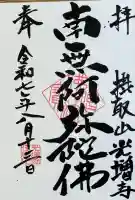 拝
摂取山光増寺
南無阿弥陀佛
奉
令和七年八月十三日